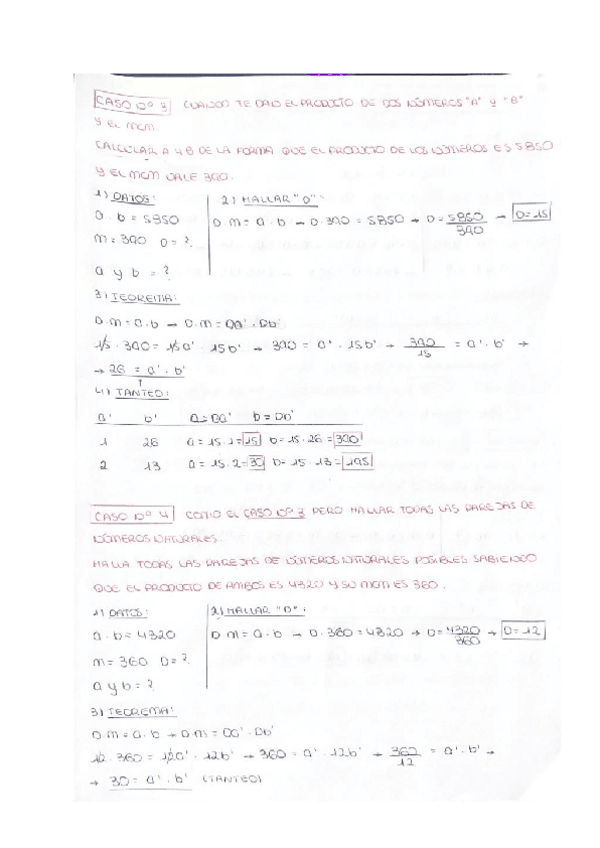 CASO Nº 3 CUANDO TE DAN EL PRODUCTO DE DOS NÚMEROS "A" Y "B"
Y EL MCM.
CALCULAR A Y B DE LA FORMA QUE EL PRODUCTO DE LOS NÚMEROS ES 5850
Y EL MCM VALE 390.
1) DATOS: 2) HALLAR "D":
a · b = 5850 D · m = a · b → D · 390 = 5850 → D = 5850/390 → D = 15
m = 390 D = ?
a y b = ?
3) TEOREMA:
D · m = a · b → D · m = Da' · Db'
15 · 390 = 15a' · 15b' → 390 = a' · 15b' → 390/15 = a' · b' →
→ 26 = a' · b'
4) TANTEO:
a' b' a = Da' b = Db'
1 26 a = 15 · 1 = 15 b = 15 · 26 = 390
2 13 a = 15 · 2 = 30 b = 15 · 13 = 195
CASO Nº 4 COMO EL CASO Nº 3 PERO HALLAR TODAS LAS PAREJAS DE
NÚMEROS NATURALES.
HALLA TODAS LAS PAREJAS DE NÚMEROS NATURALES POSIBLES SABIENDO
QUE EL PRODUCTO DE AMBOS ES 4320 Y SU MCM ES 360.
1) DATOS: 2) HALLAR "D":
a · b = 4320 D · m = a · b → D · 360 = 4320 → D = 4320/360 → D = 12
m = 360 D = ?
a y b = ?
3) TEOREMA:
D · m = a · b → D · m = Da' · Db'
12 · 360 = 12a' · 12b' → 360 = a' · 12b' → 360/12 = a' · b' →
→ 30 = a' · b' (TANTEO)